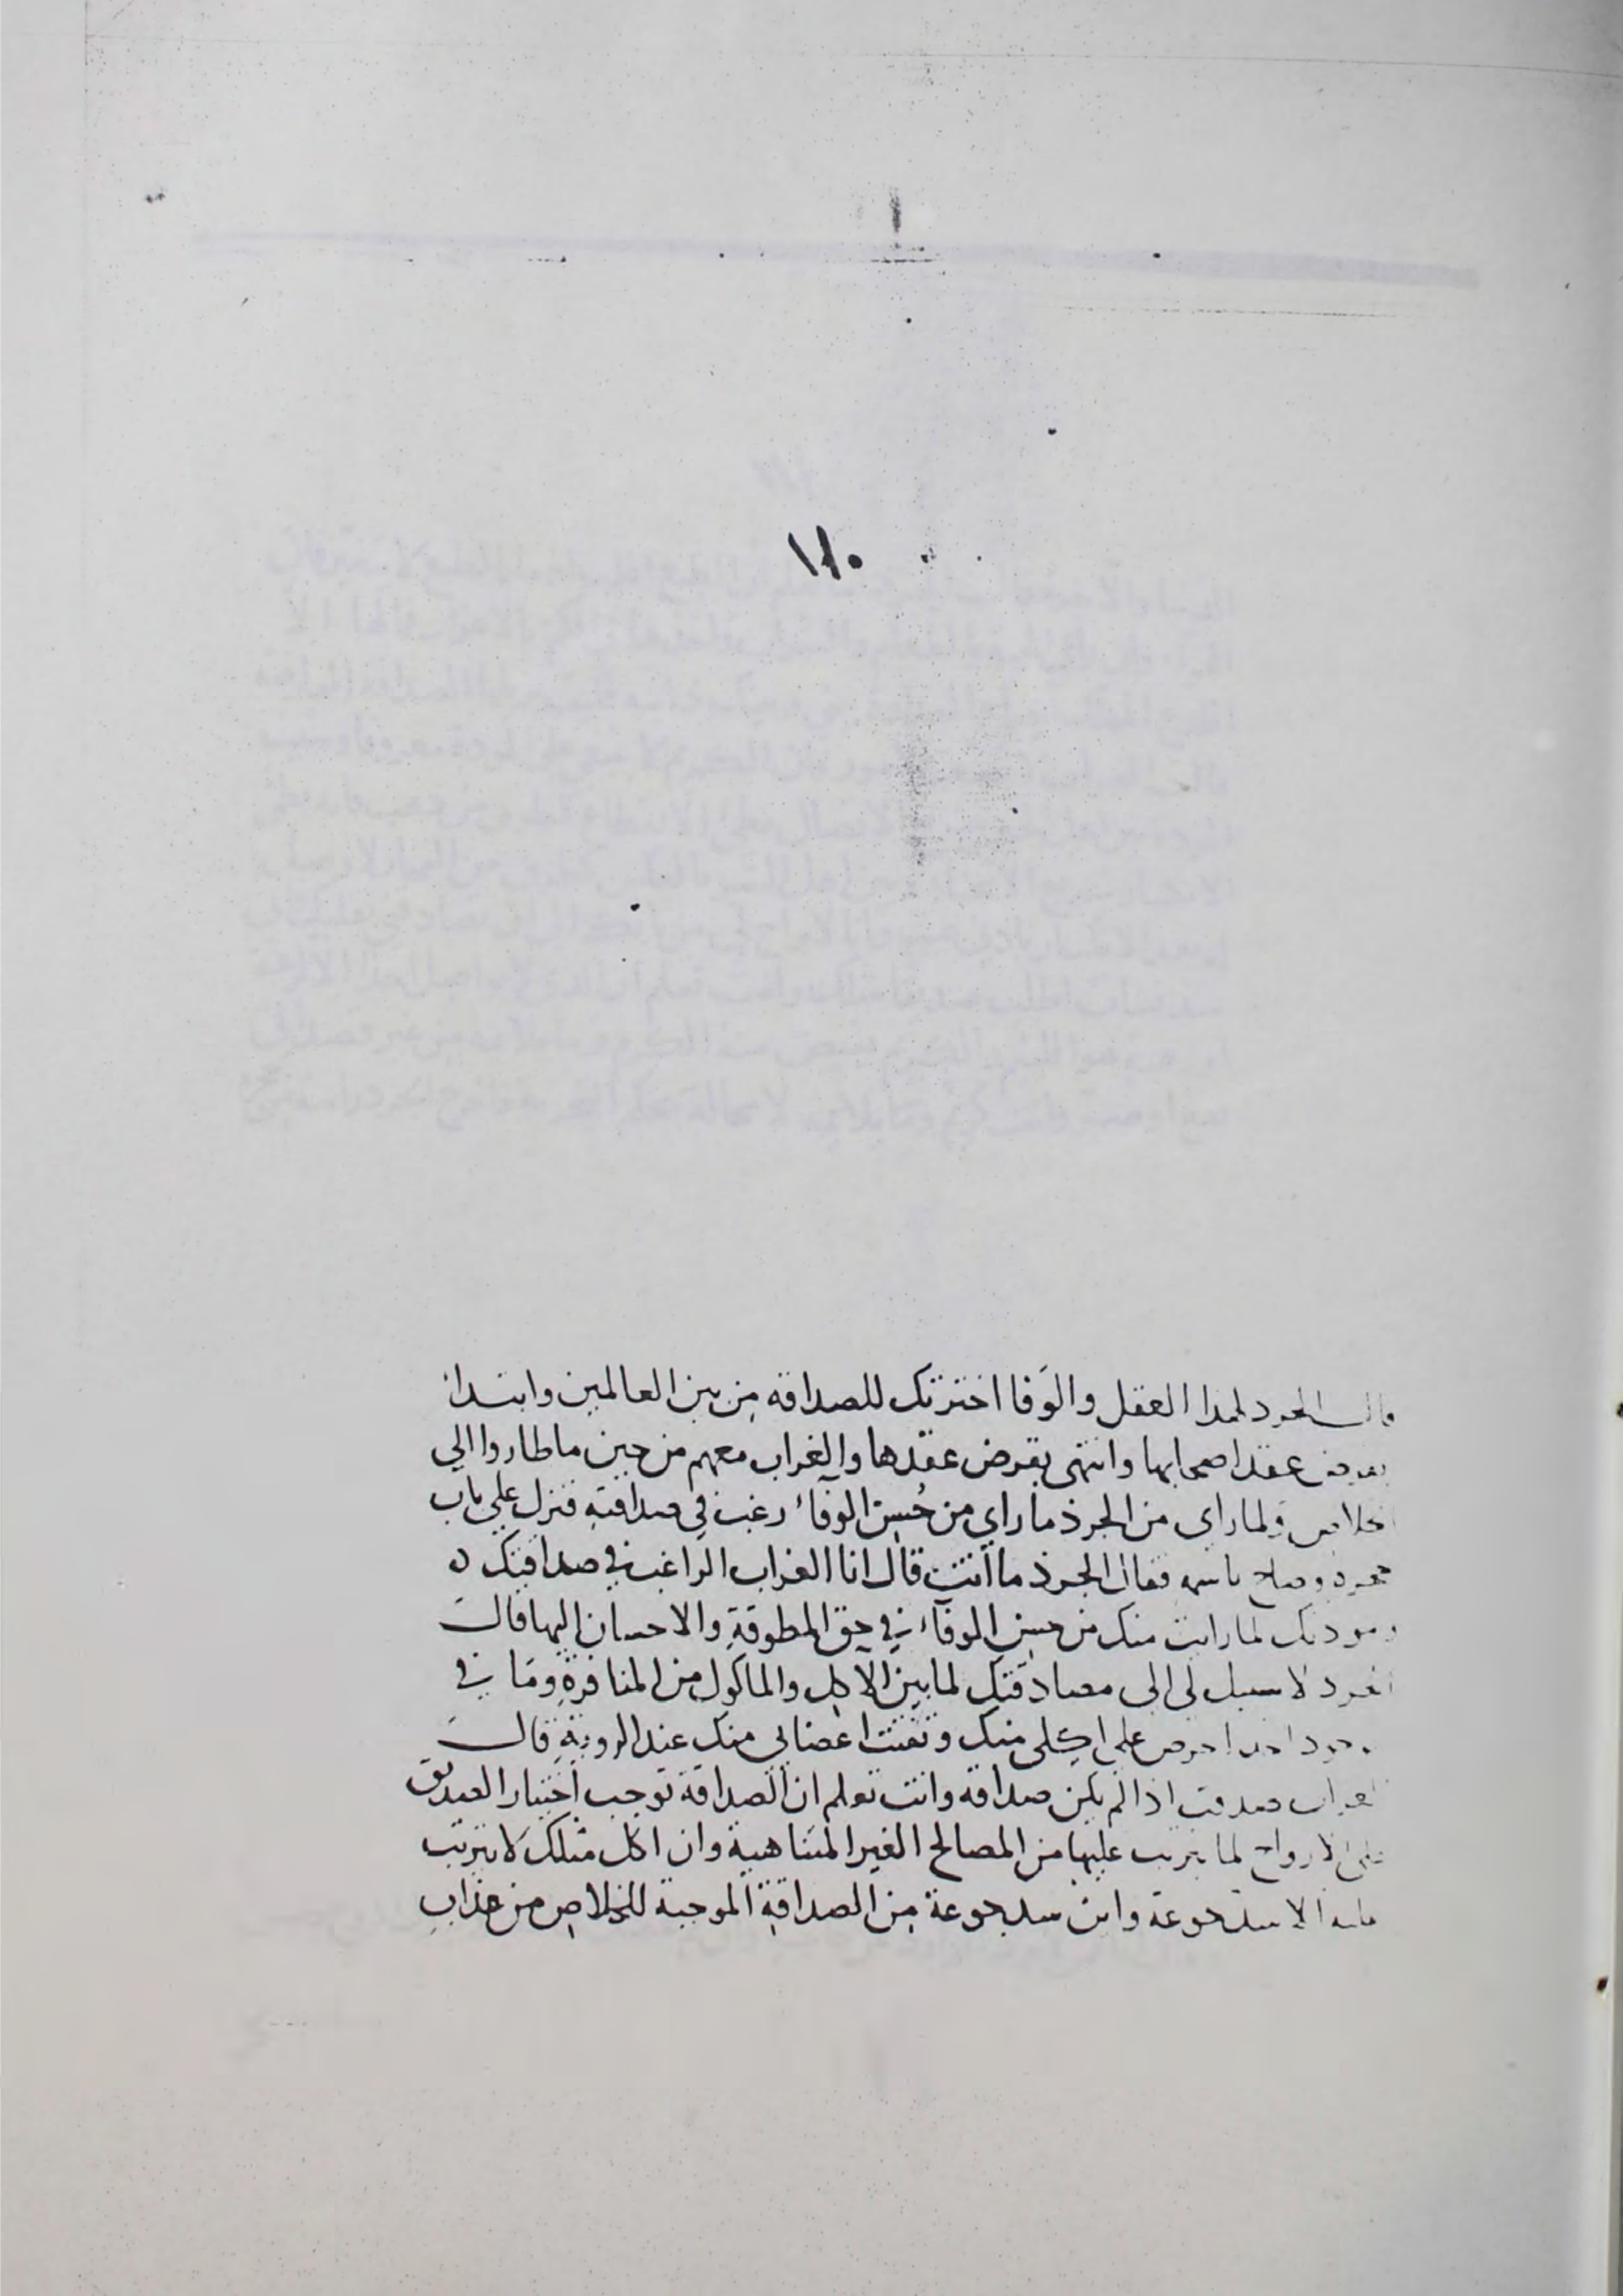 ١٧٠
قال الجرد لهذا العقل والوَفا اخترتك للصداقه من بين العالمين وابتدا
بقرض عقد اصحابها وانتهى بقرض عقدها والغراب معهم من حين ما طاروا الي
الخلاص ولما راى من الجرذ ما راي من حُسن الوفآء رغب في صداقته فنزل علي باب
وصاح باسمه فقال الجرذ ما انت قال انا الغراب الراغب في صداقتك
ومودتك لما رايت منك من حسن الوفآء في حق المطوقة والاحسان اليها قالت
الجرد لا سبيل لى الى مصادقتك لما بين الاكل والماكول من المنافرة وما في
احرص على اكلى منك وتفتت اعضائي منك عند الروية قالت
الغراب صدقت اذا لم يكن صداقة وانت تعلم ان الصداقة توجب اختيار الصديق
على الارواح لما يترتب عليها من المصالح الغير المتناهية وان اكل مثلك لا يترتب
عليه الا سد جوعة واين سد جوعة من الصداقة الموجبة للخلاص من عذاب